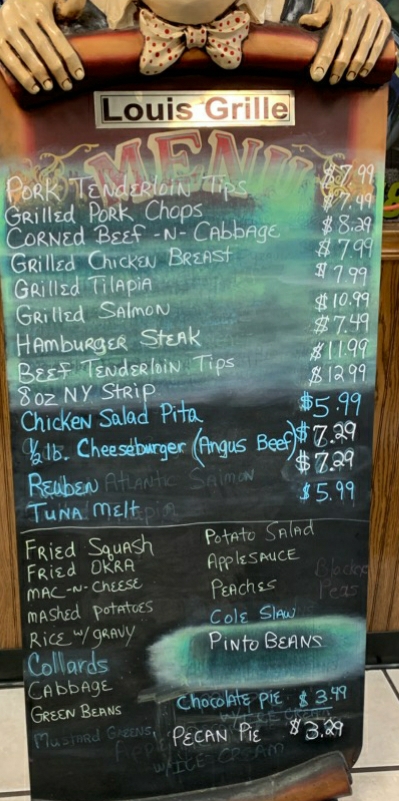 Louis Grille
MENU
PORK TENDERLOIN TIPS $7.99
GRILLED PORK CHOPS $7.49
CORNED BEEF -N- CABBAGE $8.29
GRILLED CHICKEN BREAST $7.99
GRILLED TILAPIA $7.99
GRILLED SALMON $10.99
HAMBURGER STEAK $7.49
BEEF TENDERLOIN TIPS $11.99
8oz NY STRIP $12.99
Chicken Salad Pita $5.99
1/2 lb. Cheeseburger (Angus Beef) $7.29
REUBEN $7.29
TUNA MELT $5.99
FRIED SQUASH
FRIED OKRA
MAC-N-CHEESE
MASHED POTATOES
RICE W/GRAVY
Collards
CABBAGE
GREEN BEANS
Mustard Greens,
POTATO SALAD
APPLESAUCE
PEACHES
COLE SLAW
PINTO BEANS
CHOCOLATE PIE $3.49
PECAN PIE $3.29
W/ICE CREAM